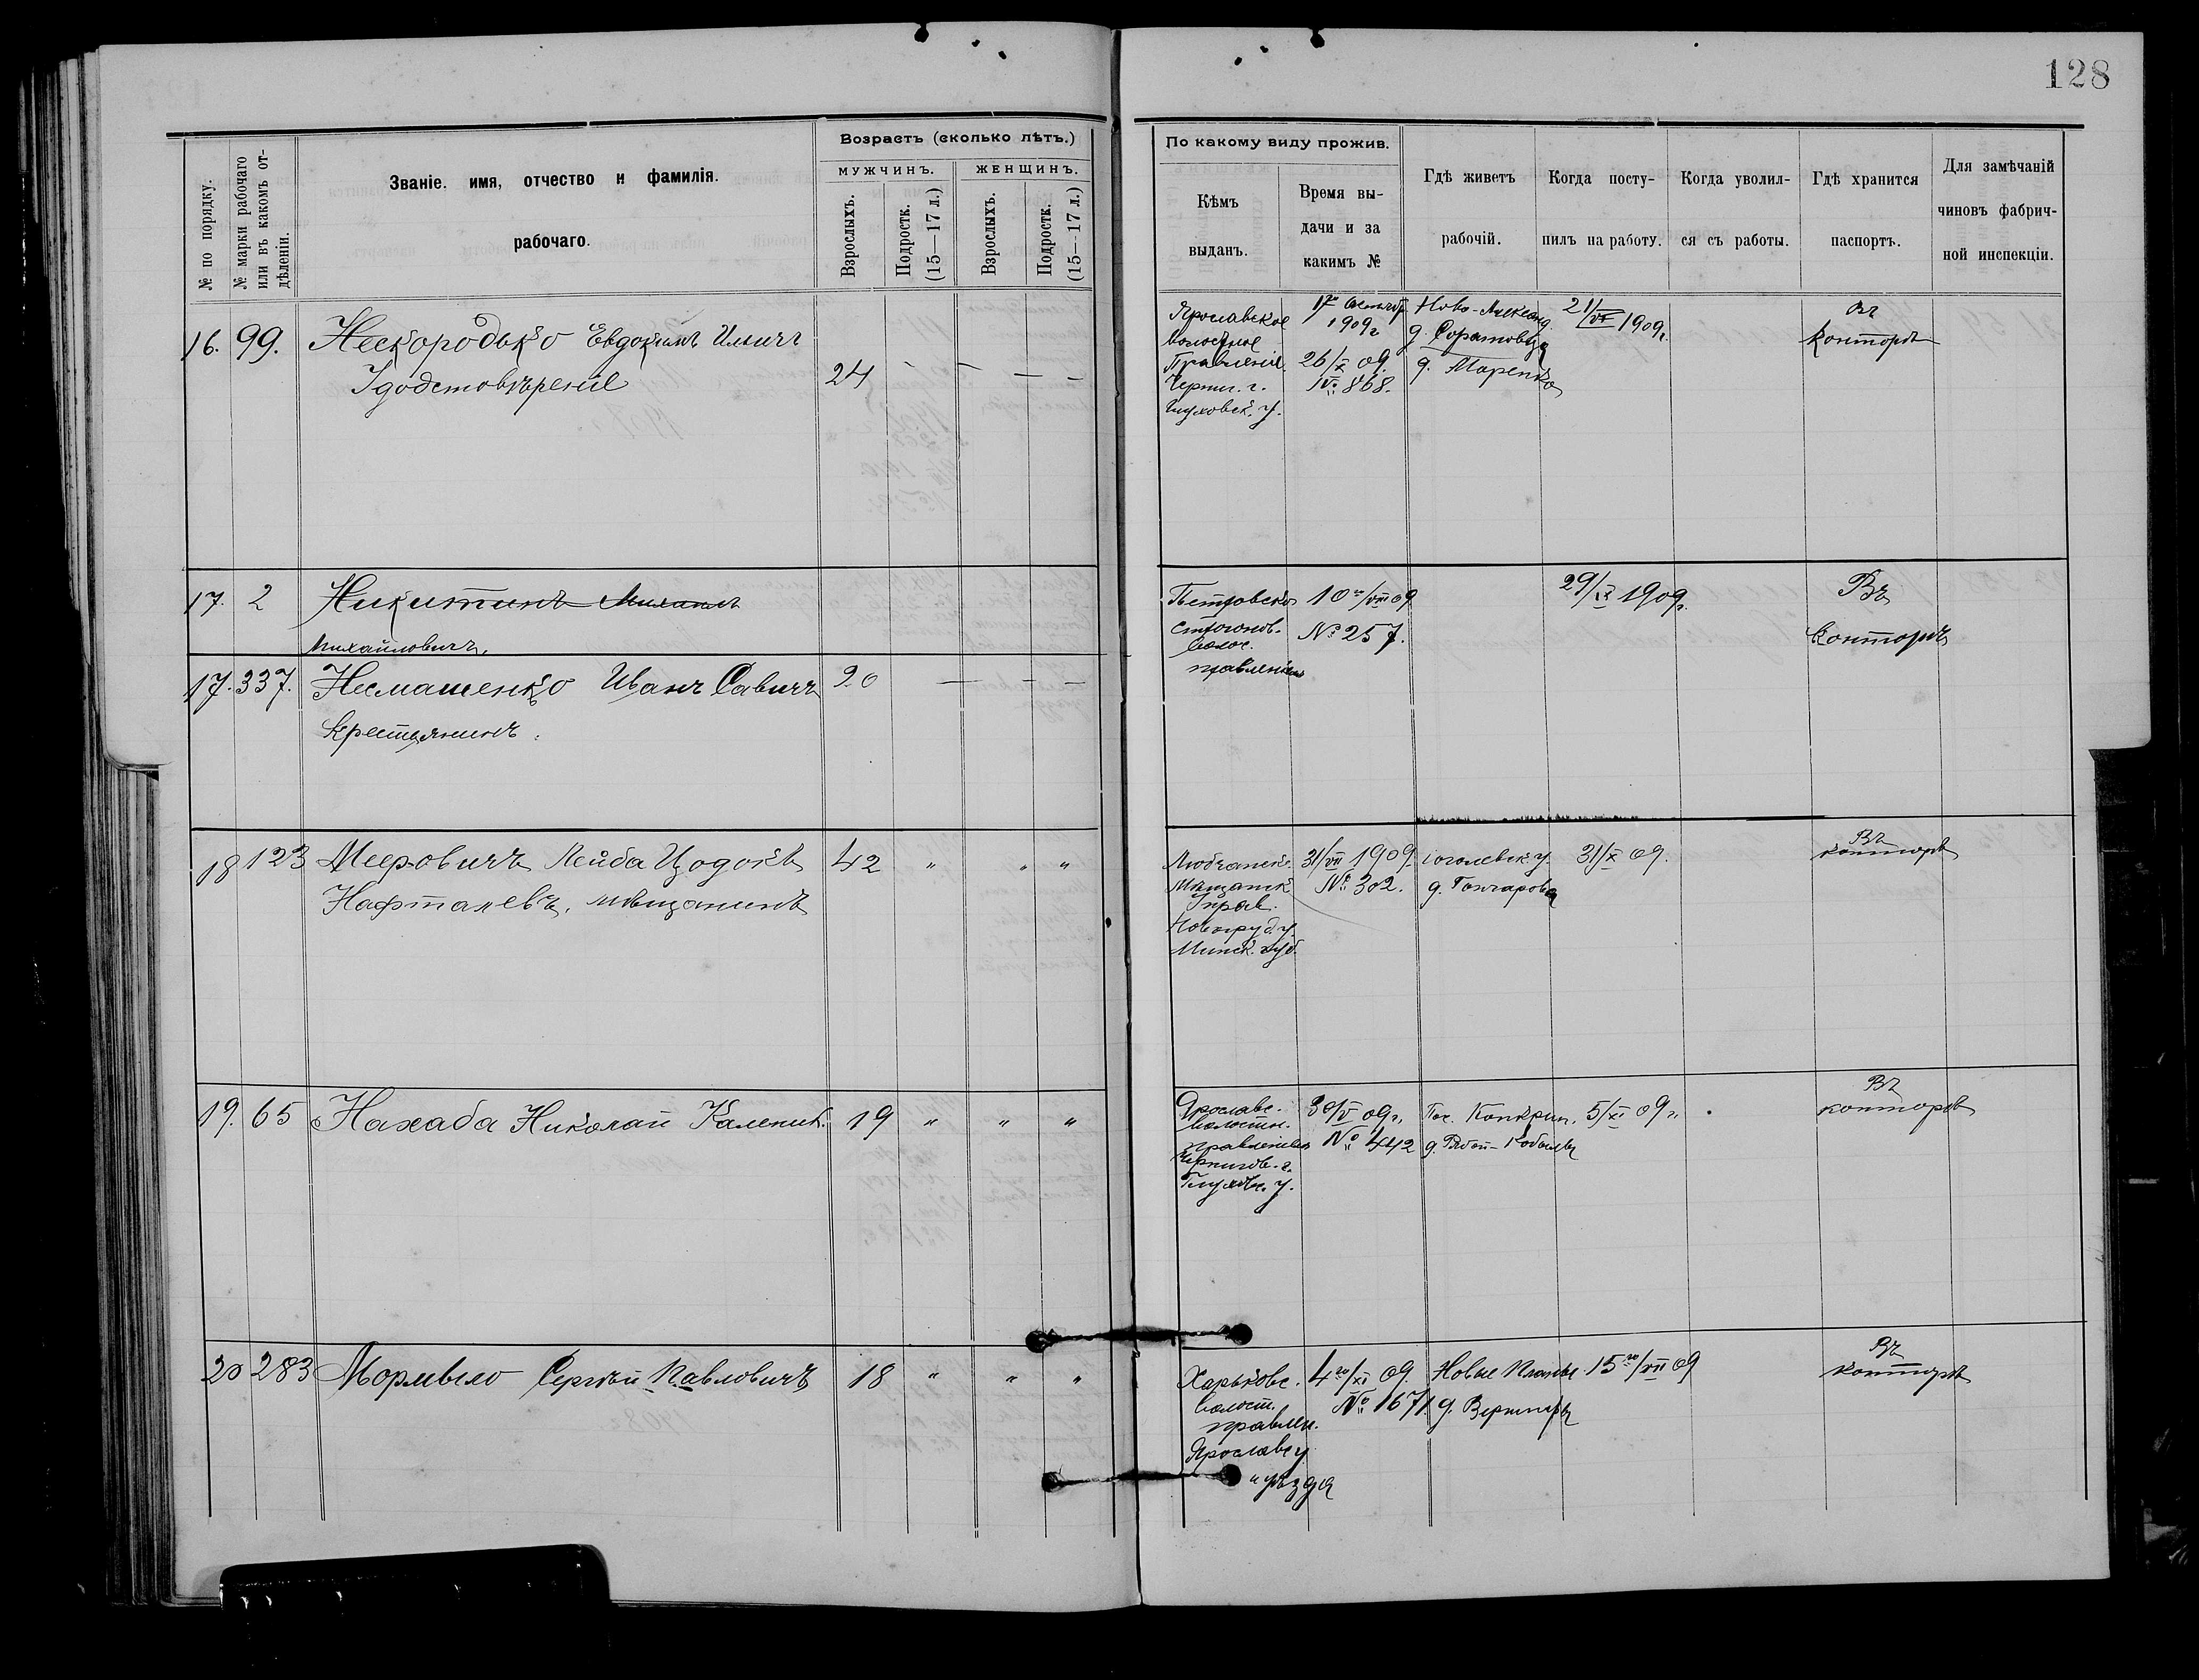 128
№ по порядку.
№ марки рабочаго или въ какомъ отдѣленіи.
Званіе, имя, отчество и фамилія
рабочаго.
Возрастъ (сколько лѣтъ.)
МУЖЧИНЪ.
ЖЕНЩИНЪ.
Взрослыхъ.
Подростк. (15—17 л.)
Взрослыхъ.
Подростк. (15—17 л.)
По какому виду прожив.
Кѣмъ
выданъ.
Время вы-
дачи и за
какимъ №
Гдѣ живетъ
рабочій.
Когда посту-
пилъ на работу.
Когда уволил-
ся съ работы.
Гдѣ хранится
паспортъ.
Для замѣчаній
чиновъ фабрич-
ной инспекціи.
16. 99. Нескородько Евдокимъ Ильичъ
24
Ярославское
Волостное
Правленіе
Черниг. г.
Глуховск. у.
1909 г
26/X 09.
№ 868.
Ново-Александ.
д. Маренко
21/VI 1909 г.
Въ
конторѣ
17. 2 Никитинъ Михаилъ
Михайловичъ,
Петровско
Строгонов.
Волос.
правленіемъ
10го/VIII 09
№ 257.
29/IX 1909 г.
Въ
Конторѣ
17. 337. Несмашенко Иванъ Савичъ 20
Крестьянинъ.
18 123 Мееровичъ Лейба Цодокъ 42 " " "
Нафталевъ, мѣщанинъ
Любчанск.
Мѣщанск
Управ.
Новогруд. у.
Минск. губ.
31/VII 1909.
№ 302.
Гоголевск. у.
д. Гончарова
31/X 09.
Въ
конторѣ
19. 65 Нахаба Николай Каленик. 19 " " "
Ярославс.
волостн.
правленіем
Чернигов. г.
Глухов. у.
30/V 09 г.
№ 442
д. Рябой-Кобылы
5/XI 09 г.
Въ
конторѣ
20 283 Мормыло Сергѣй Павловичъ 18 " " "
Харьковс.
Волост.
правлен.
Ярославс у
уѣзда
4го/XI 09.
№ 1671.
Новые Планы
15го/VII 09
Въ
конторѣ